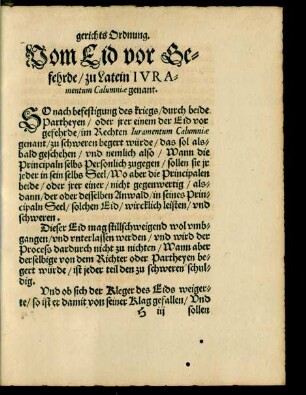 gerichts Ordnung.
Vom Eid vor Ge-
fehrde/ zu Latein IVRA-
mentum Calumniæ genant.
SO nach befestigung des kriegs/ durch beide
Partheyen/ oder jrer einem der Eid vor
gefehrde/ im Rechten Iuramentum Calumniæ
genant/ zu schweren begert würde/ das sol als
bald geschehen/ vnd nemlich also/ Wann die
Principaln selbs Persönlich zugegen/ sollen sie jr
jeder in sein selbs Seel/ Wo aber die Principalen
beide/ oder jrer einer/ nicht gegenwertig/ als-
dann/ der oder desselben Anwald/ in seines Prin-
cipaln Seel/ solchen Eid/ wircklich leisten/ vnd
schweren.
Dieser Eid mag stillschweigend wol vmb-
gangen/ vnd vnterlassen werden/ vnd wird der
Proceß dardurch nicht zu nichten/ Wann aber
derselbige von dem Richter oder Partheyen be-
gert würde/ ist jeder teil den zu schweren schul-
dig.
Vnd ob sich der Kleger des Eids weiger-
te/ so ist er damit von seiner Klag gefallen/ Vnd
H iij sollen